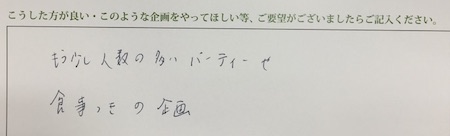 こうした方が良い・このような企画をやってほしい等、ご要望がございましたらご記入ください。
もう少し人数の多いパーティーや
食事つきの企画